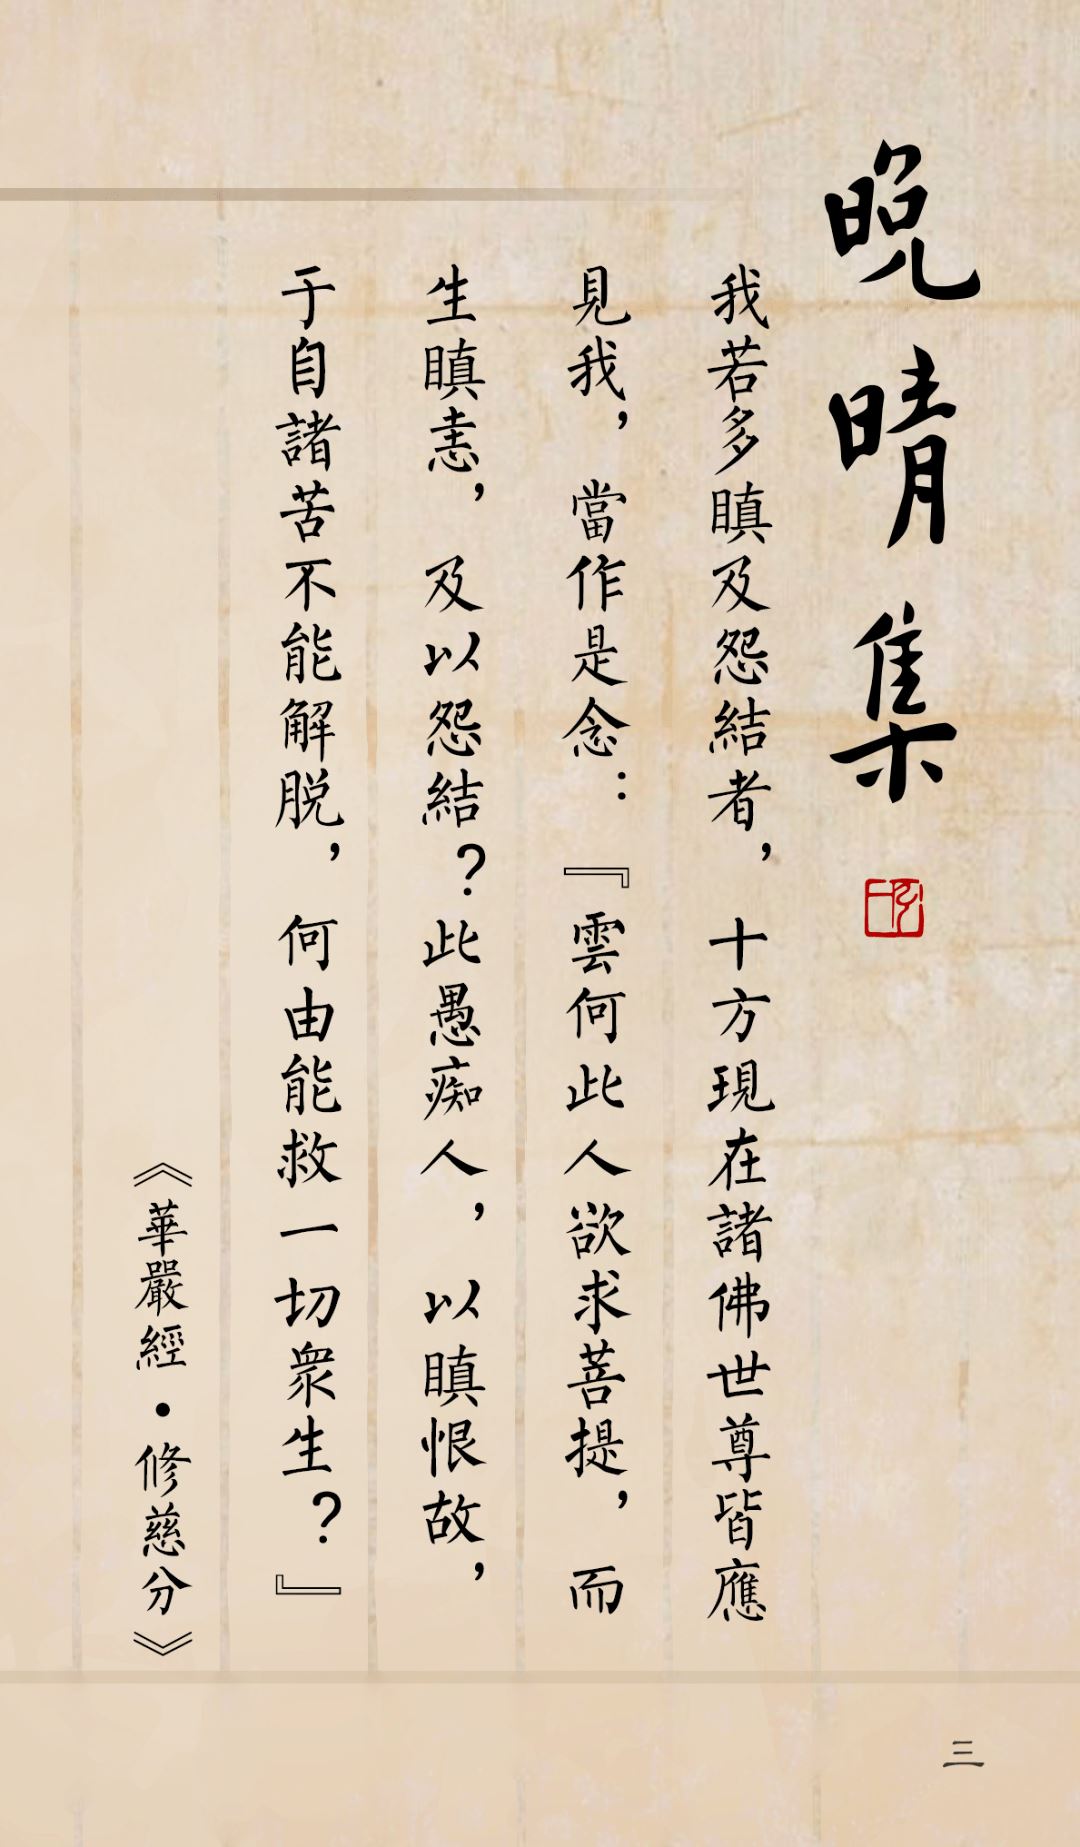 晚晴集
我若多瞋及怨結者，十方現在諸佛世尊皆應
見我，當作是念：『雲何此人欲求菩提，而
生瞋恚，及以怨結？此愚痴人，以瞋恨故，
于自諸苦不能解脱，何由能救一切衆生？』
《華嚴經•修慈分》
三